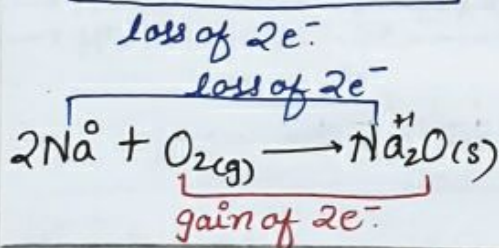 loss of 2e⁻.
loss of 2e⁻
2Na⁰ + O₂(g) ⟶ Na₂⁺¹O(s)
gain of 2e⁻.